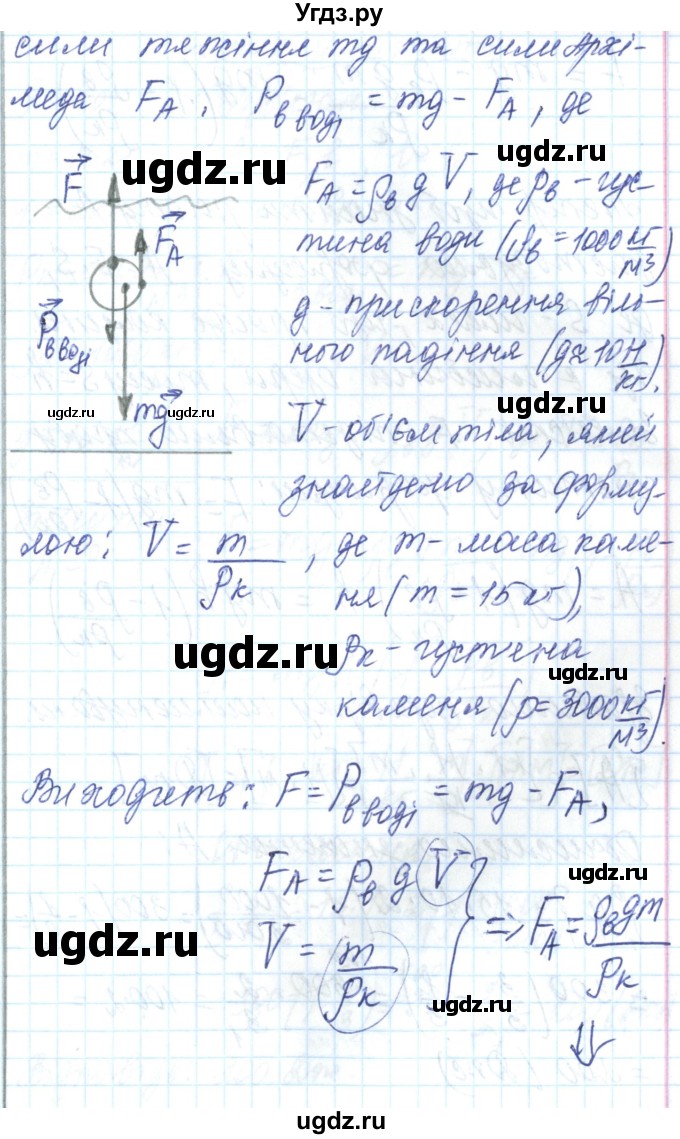 Угдз.ру
сили тяжіння mg та сили Архі-
меда F_A, P_в воді = mg - F_A, де
ugdz.ru
F
F_A
P_в воді
mg
ugdz.ru
ugdz.ru
F_A = ρ_в g V, де ρ_в - гус-
ugdz.ru
тина води (ρ_в = 1000 кг/м³)
g - прискорення віль-
ного падіння (g ≈ 10 Н/кг).
ugdz.ru
V - об'єм тіла, який
знайдемо за форму-
лою: V = m/ρ_к, де m - маса каме-
ня (m = 15 кг),
ugdz.ru
ρ_к - густина
каменя (ρ = 3000 кг/м³).
ugdz.ru
Виходить: F = P_в воді = mg - F_A,
F_A = ρ_в g V
ugdz.ru
V = m/ρ_к } => F_A = ρ_в g m/ρ_к
ugdz.ru
ugdz.ru
⇓
ugdz.ru